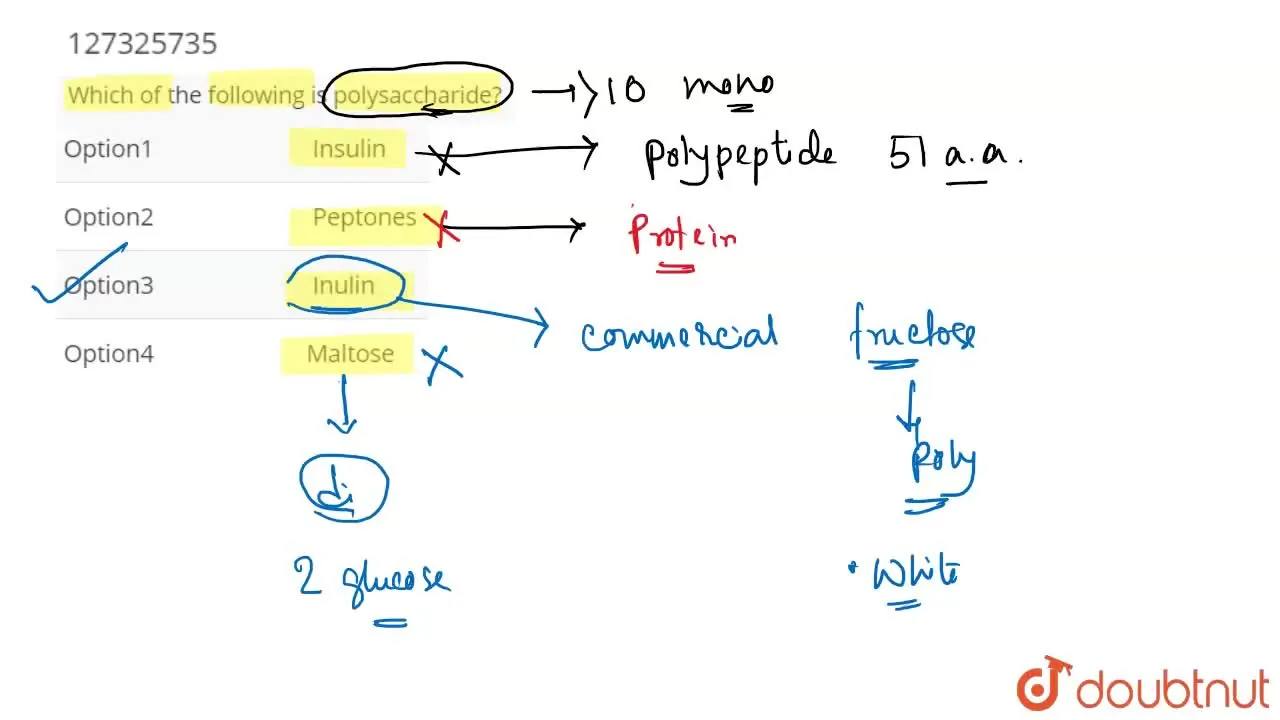 127325735
Which of the following is polysaccharide? → >10 mono
Option1 Insulin × → Polypeptide 51 a.a.
Option2 Peptones × → Protein
Option3 Inulin → commercial fructose
Option4 Maltose ×
Poly
di
2 glucose
• White
doubtnut